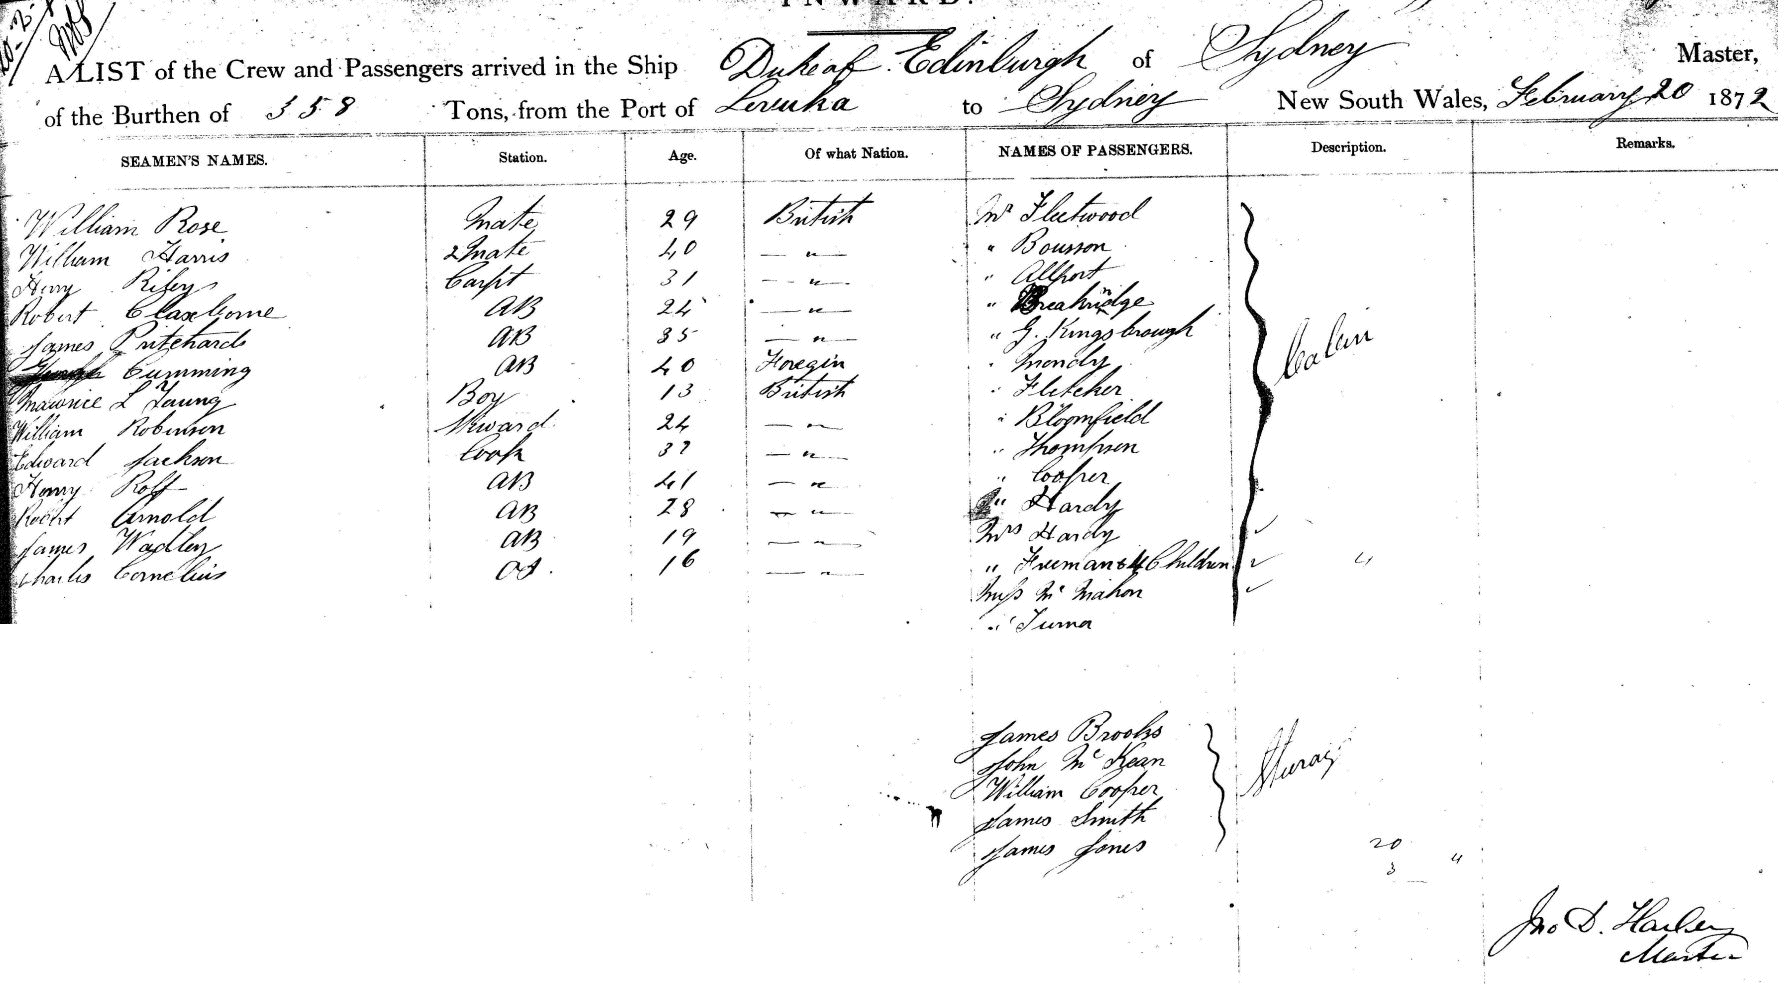 INWARD.
A LIST of the Crew and Passengers arrived in the Ship Duke of Edinburgh of Sydney Master,
of the Burthen of 358 Tons, from the Port of Levuka to Sydney New South Wales, February 20 1872
SEAMEN'S NAMES. Station. Age. Of what Nation. NAMES OF PASSENGERS. Description. Remarks.
William Rose Mate 29 British Mr Fleetwood
William Harris 2 Mate 40 — " — " Bousson
Henry Riley Carpt 31 — " — " Allport
Robert Claxborne AB 24 — " —
James Pritchards AB 35 — " — " G. Kingsbrough
Cumming AB 40 Foregin " Mondy
Maurice L Young Boy 13 British " Fletcher
William Robinson Steward 24 — " — " Bloomfield
Edward Jackson Cook 32 — " — " Thompson
Henry Roff AB 41 — " — " Cooper
Robert Arnold AB 28 — " — " Hardy
James Wadley AB 19 — " — Mrs Hardy
Charles Cornelius OS 16 — " — " Freman & 4 Children 4
Miss Mc Mahon
" Turna
Cabin
James Brooks
John Mc Kean
William Cooper
James Smith
James Jones
20
3 4
Jno D. Harley
Master